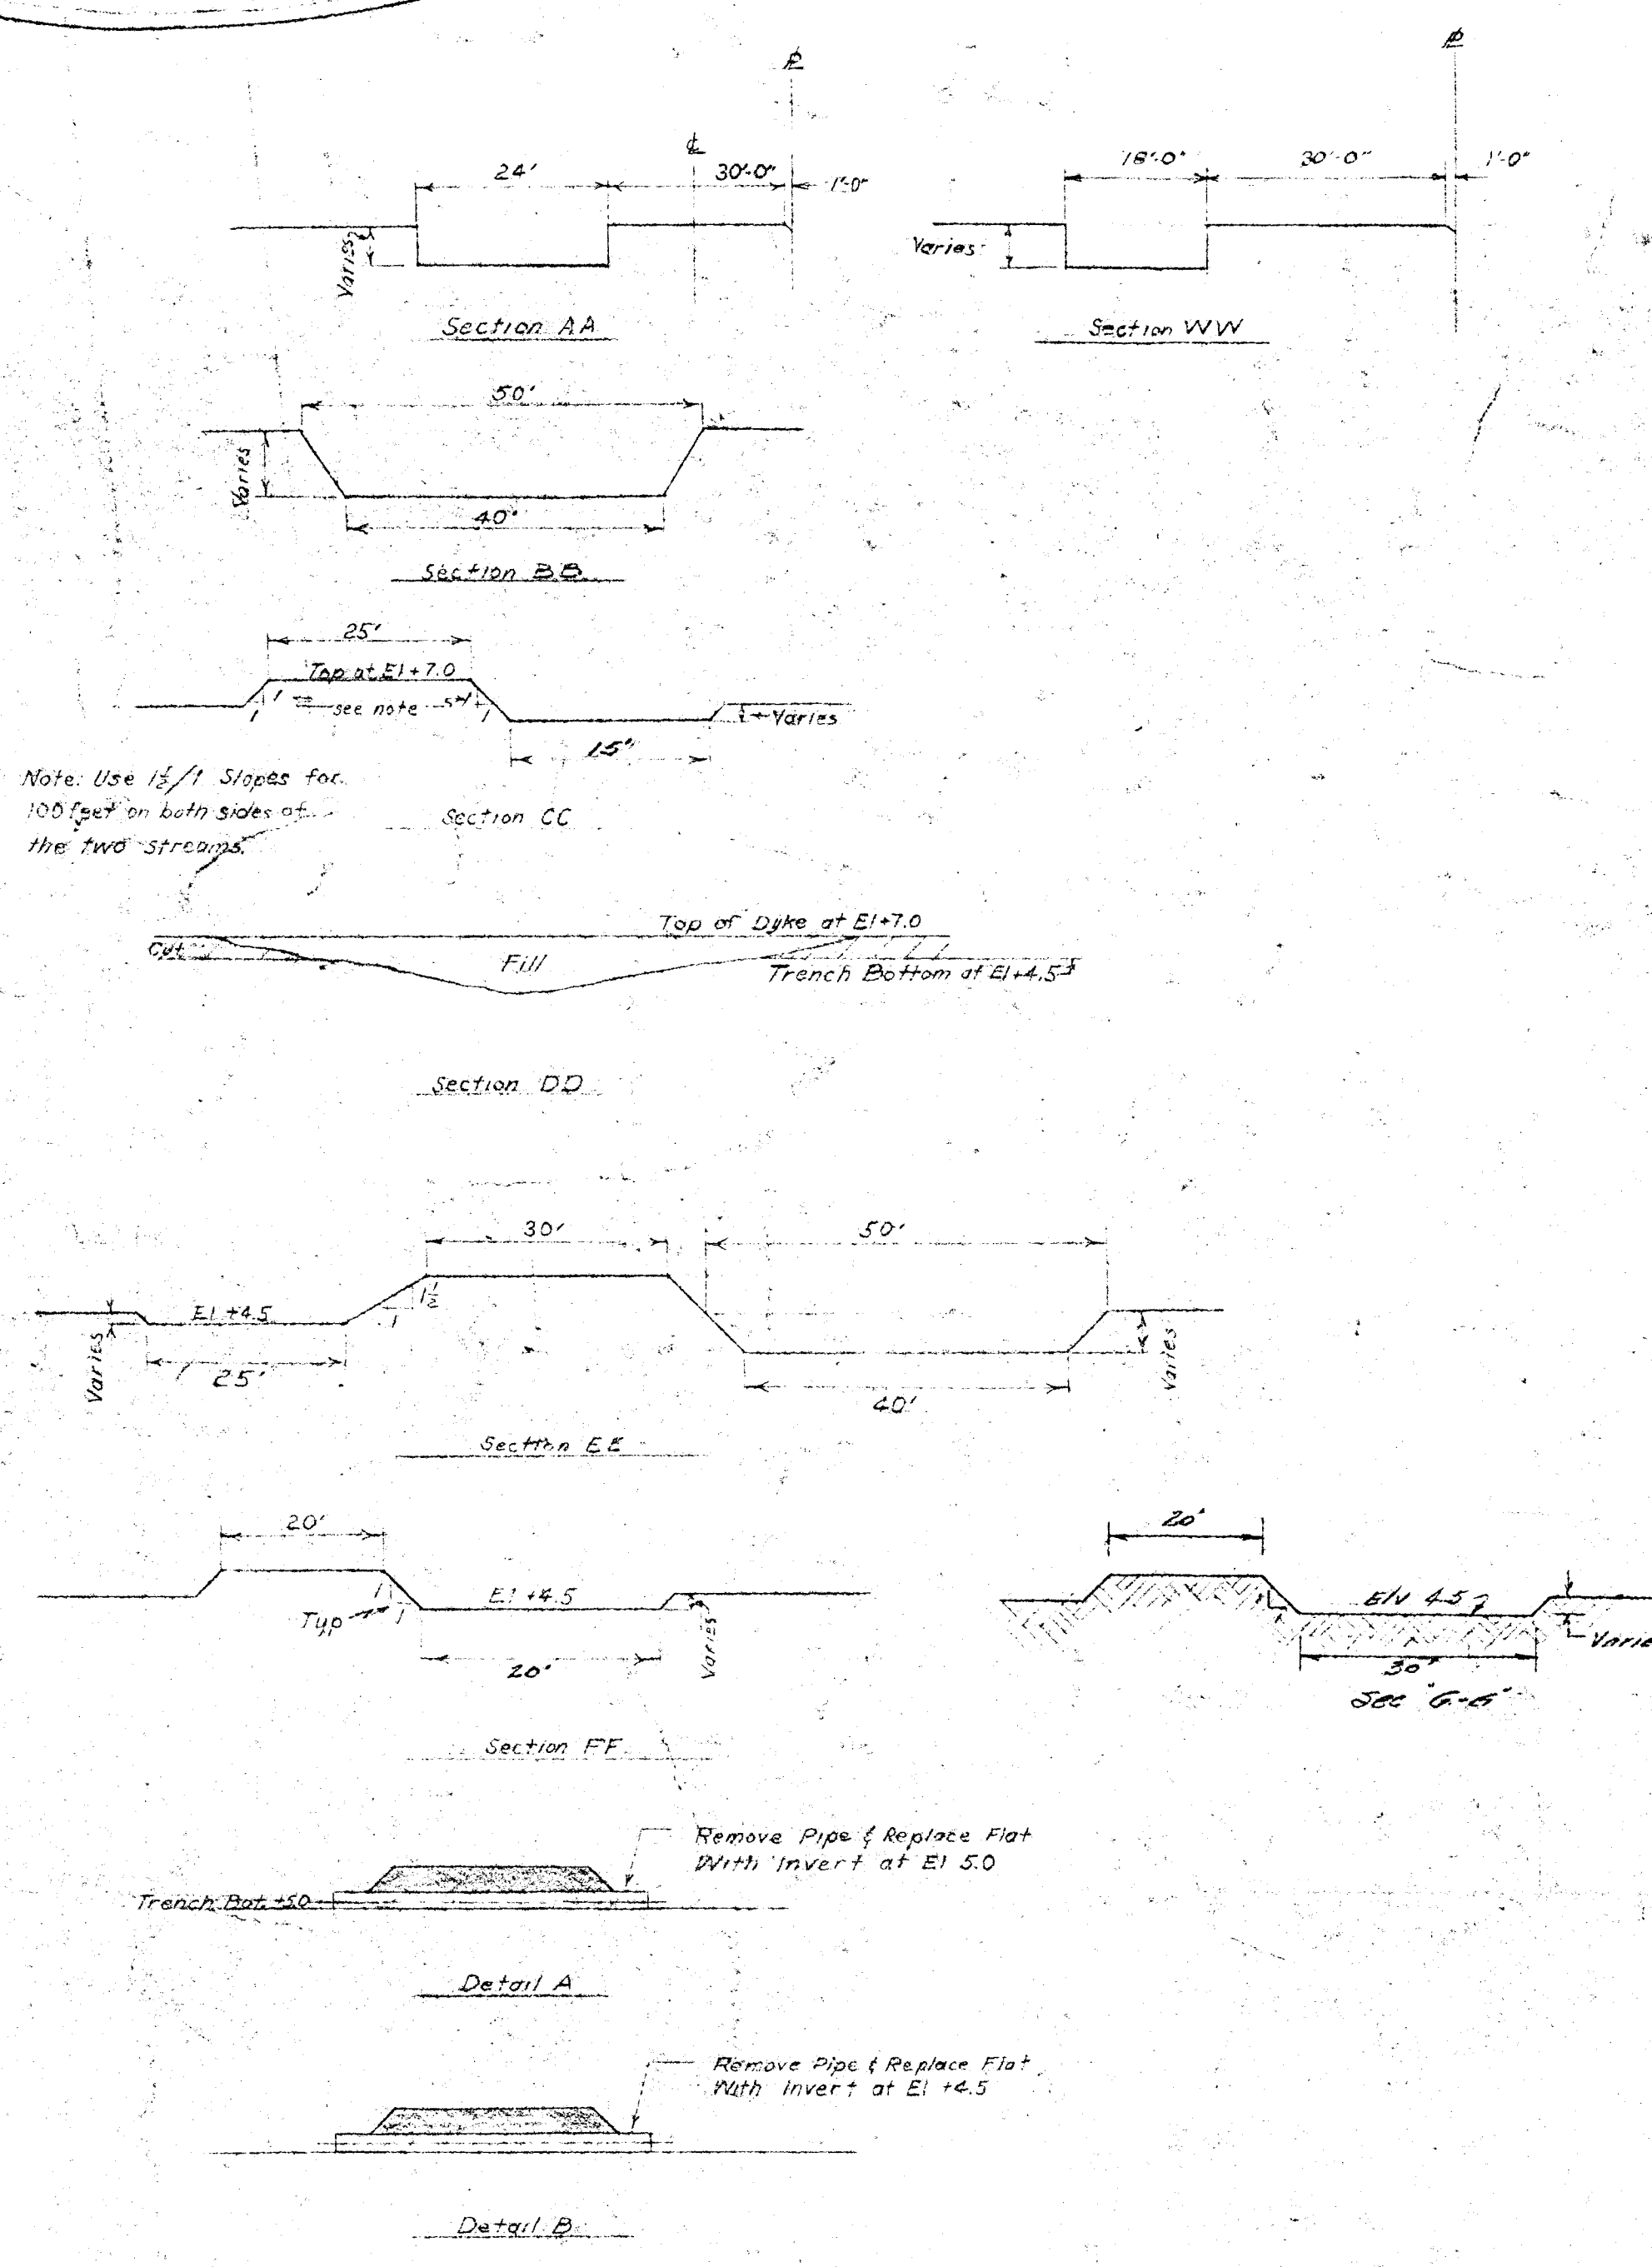 ℄
24'
30'-0"
1'-0"
Varies
Section AA
18'-0"
30'-0"
1'-0"
Varies
Section WW
50'
Varies
40'
Section BB
25'
Top at El + 7.0
see note
Varies
15'
Note: Use 1½/1 Slopes for
100 feet on both sides of
the two streams.
Section CC
Top of Dyke at El+7.0
Cut
Fill
Trench Bottom at El+4.5
Section DD
30'
50'
1½
1
El +4.5
Varies
25'
Varies
40'
Section EE
20'
1
El +4.5
Typ
1
Varies
20'
Section FF
20'
Elv 4.5
Varie
30'
Sec "G-G"
Remove Pipe & Replace Flat
With Invert at El 5.0
Trench Bot +5.0
Detail A
Remove Pipe & Replace Flat
With Invert at El +4.5
Detail B